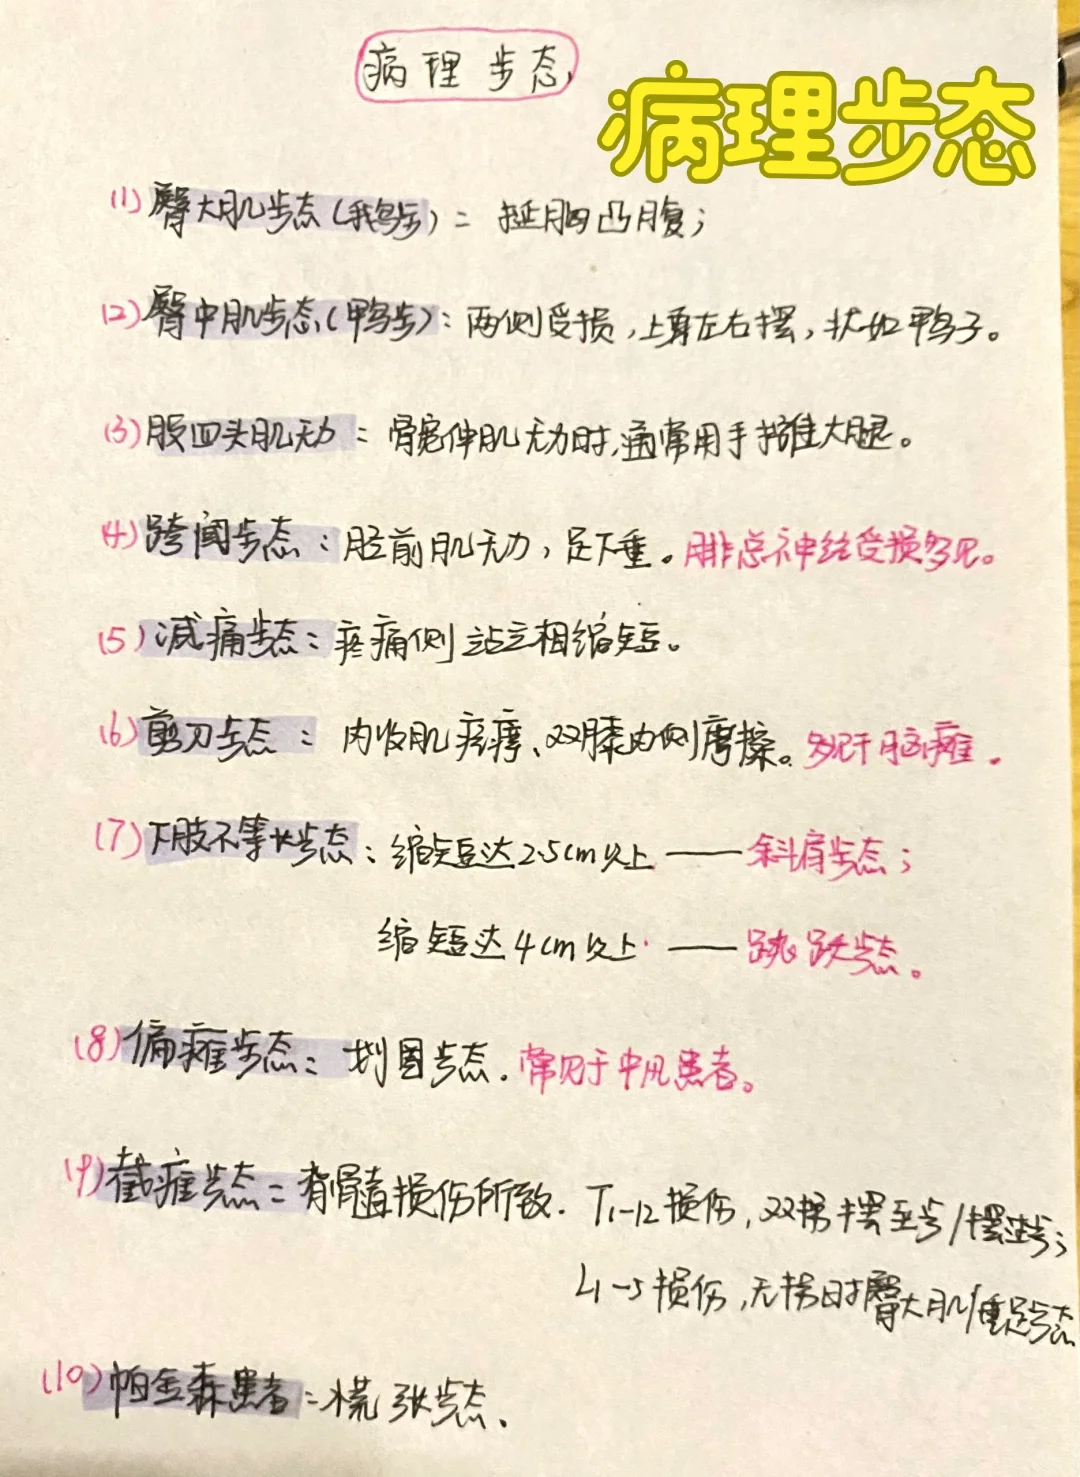 病理步态
病理步态
(1) 臀大肌步态(鹅步): 挺胸凸腹;
(2) 臀中肌步态(鸭步): 两侧受损,上身左右摆,状如鸭子。
(3) 股四头肌无力: 髋伸肌无力时,通常用手推大腿。
(4) 跨阈步态: 胫前肌无力,足下垂。腓总神经受损多见。
(5) 减痛步态: 疼痛侧站立相缩短。
(6) 剪刀步态: 内收肌痉挛、双膝内侧摩擦。多见于脑瘫.
(7) 下肢不等长步态: 缩短达2.5cm以上 —— 斜肩步态;
缩短达4cm以上 —— 跳跃步态。
(8) 偏瘫步态: 划圈步态. 常见于中风患者。
(9) 截瘫步态: 脊髓损伤所致. T1-12损伤,双拐摆至步/摆过步;
L1-5损伤,无拐时臀大肌/垂足步态
(10) 帕金森患者: 慌张步态、